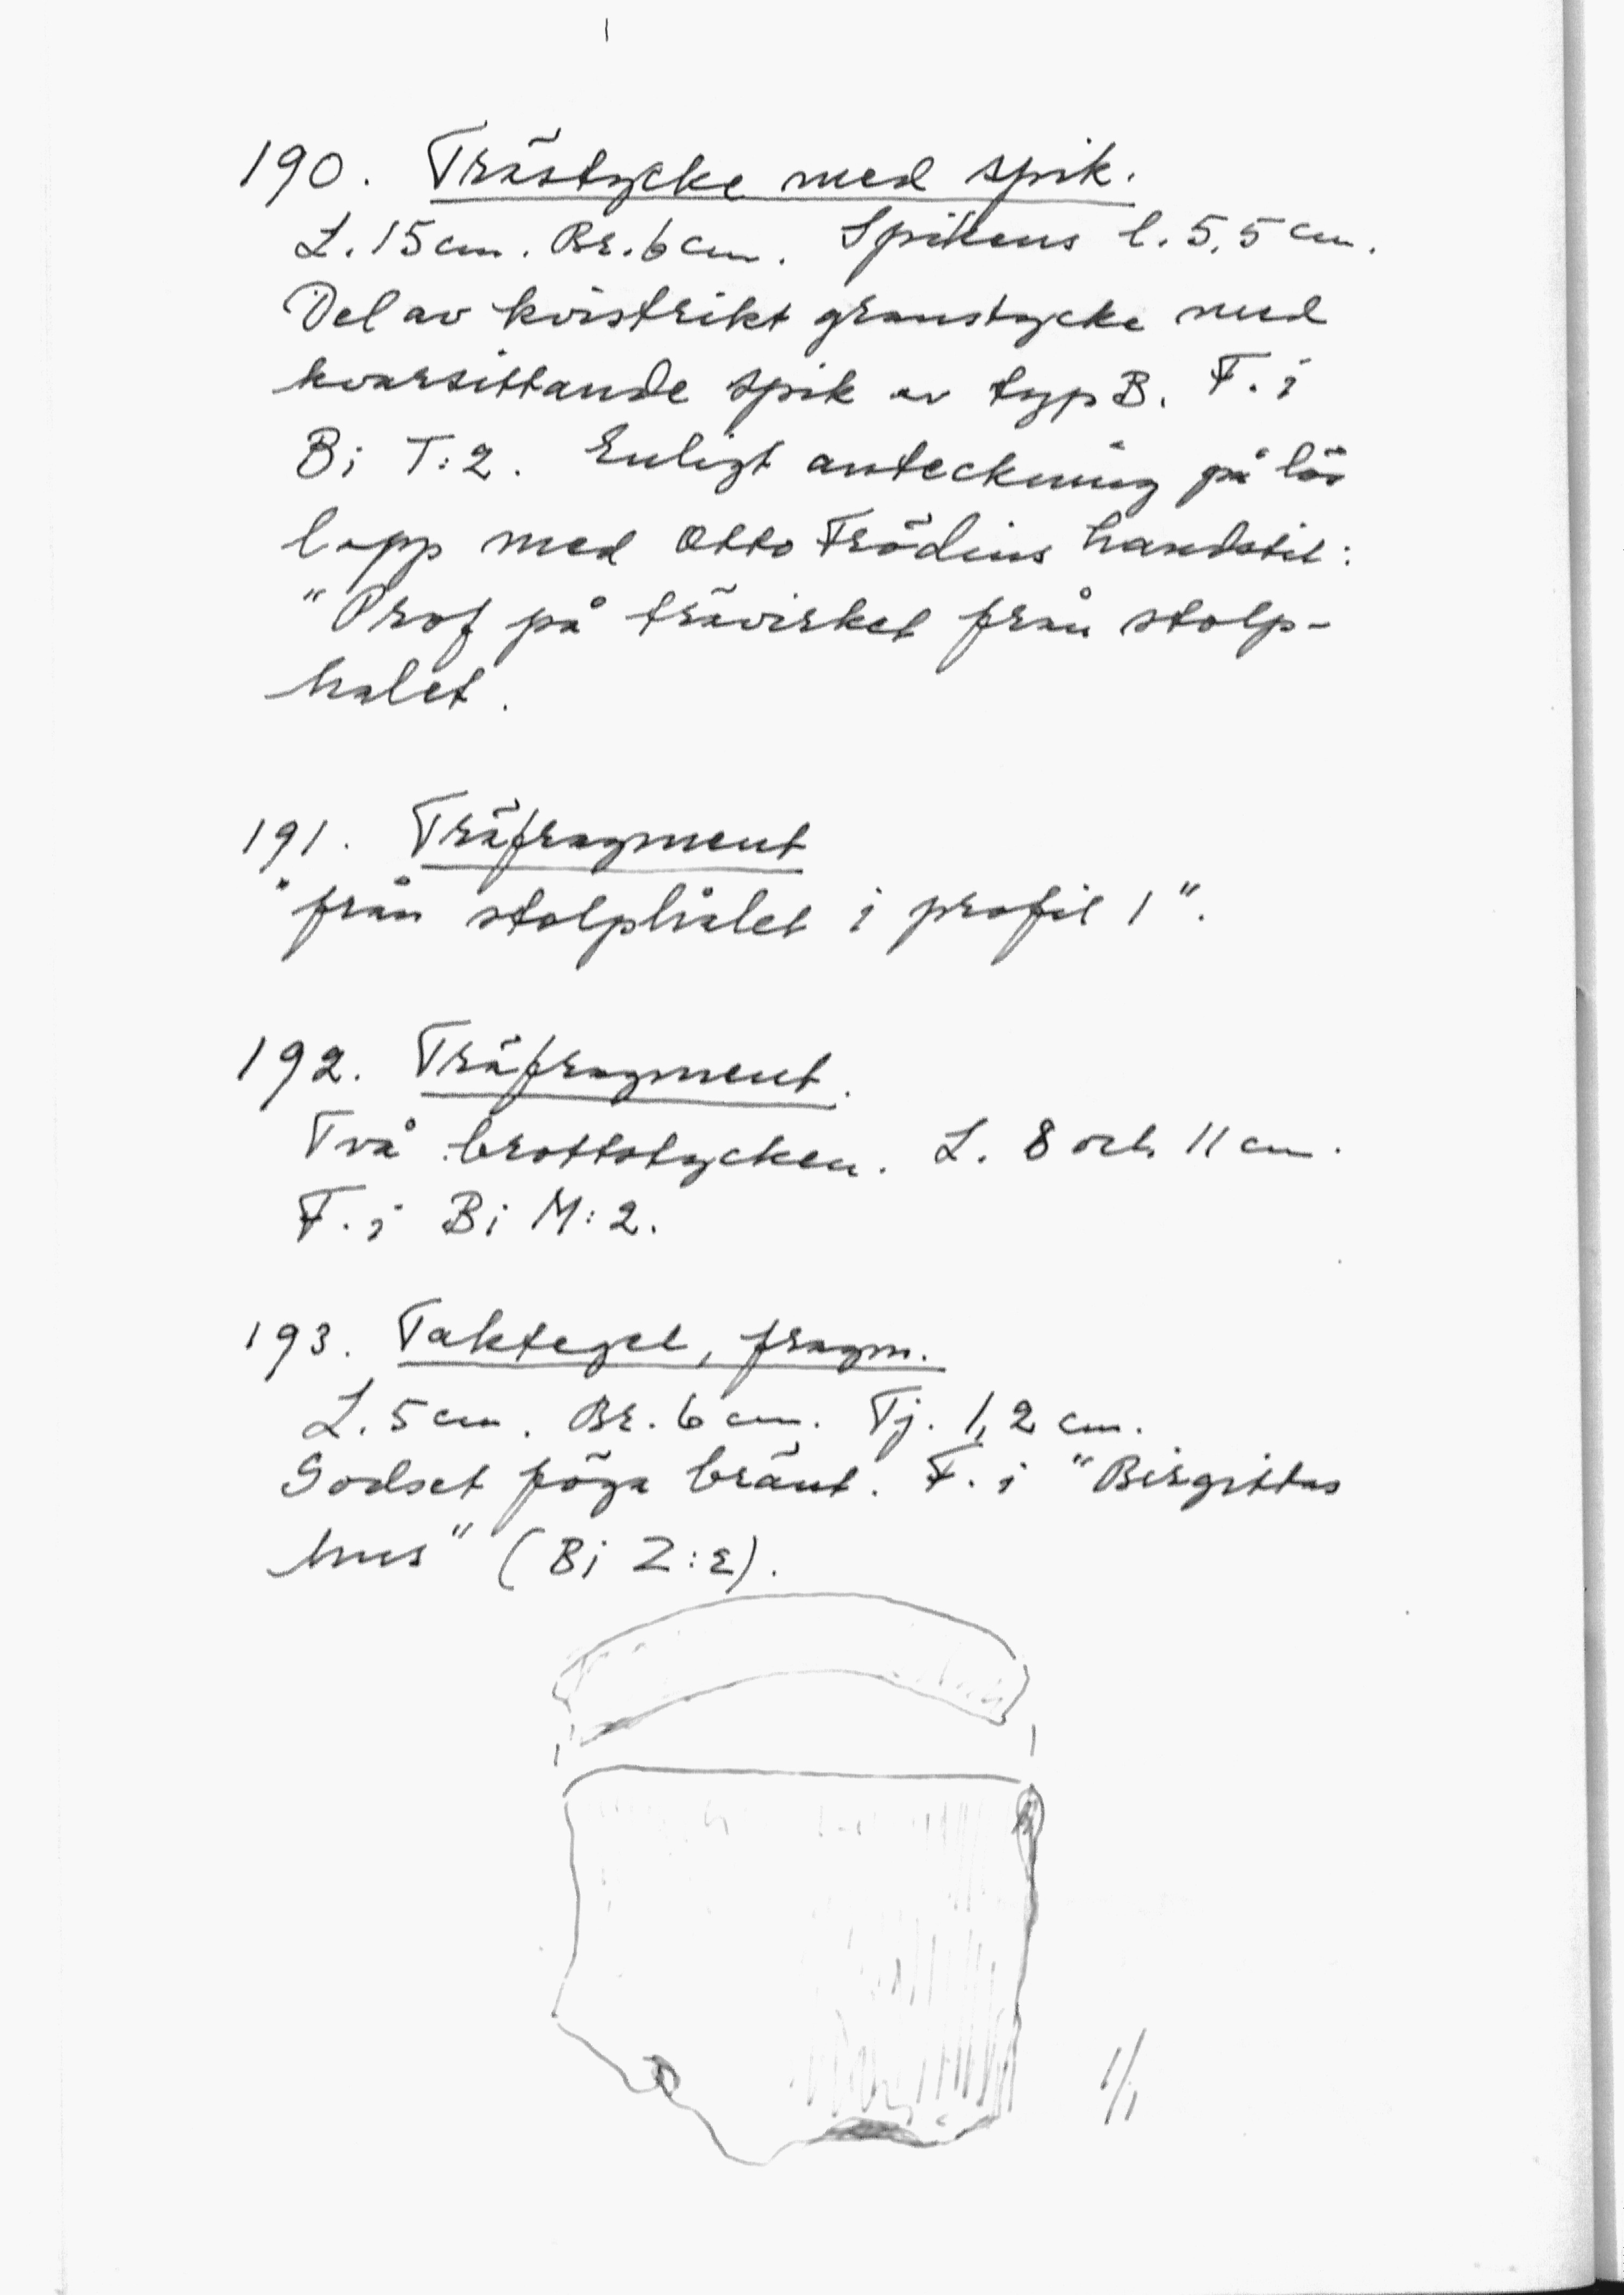 190. Trästycke med spik.
L. 15 cm. Br. 6 cm. Spikens l. 5,5 cm.
Del av kvistrikt granstycke med
kvarsittande spik av typ B. F. i
Bi T:2. Enligt anteckning på lös
lapp med Otto Frödins handstil:
"Prof på trävirket från stolp-
halet.
191. Träfragment
"från stolphålet i profil 1".
192. Träfragment.
Två brottstycken. L. 8 och 11 cm.
F. i Bi M:2.
193. Taktegel, fragm.
L. 5 cm. Br. 6 cm. Tj. 1,2 cm.
Godset föga bränt. F. i "Birgittas
hus" (Bi Z:2).
1/1